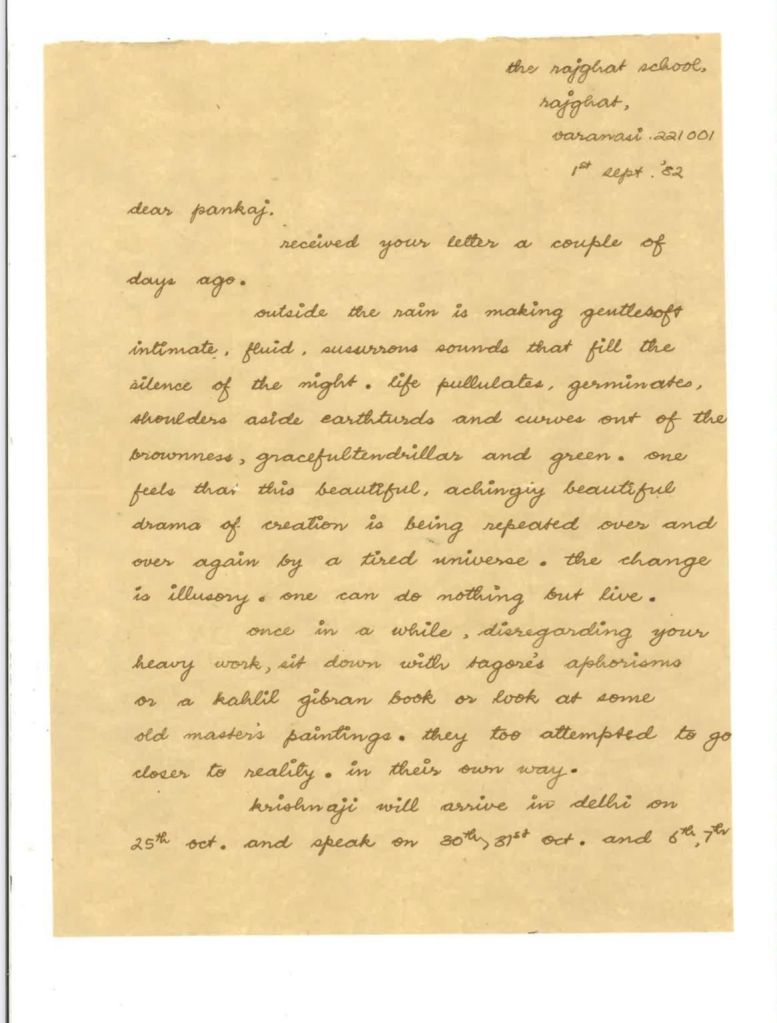 the rajghat school,
rajghat,
varanasi.221001
1st sept. '82
dear pankaj.
received your letter a couple of
days ago.
outside the rain is making gentlesoft
intimate, fluid, susurrous sounds that fill the
silence of the night. life pullulates, germinates,
shoulders aside earthturds and curves out of the
brownness, gracefultendrillar and green. one
feels that this beautiful, achingly beautiful
drama of creation is being repeated over and
over again by a tired universe. the change
is illusory. one can do nothing but live.
once in a while, disregarding your
heavy work, sit down with tagore's aphorisms
or a kahlil gibran book or look at some
old master's paintings. they too attempted to go
closer to reality. in their own way.
krishnaji will arrive in delhi on
25th oct. and speak on 30th, 31st oct. and 6th, 7th